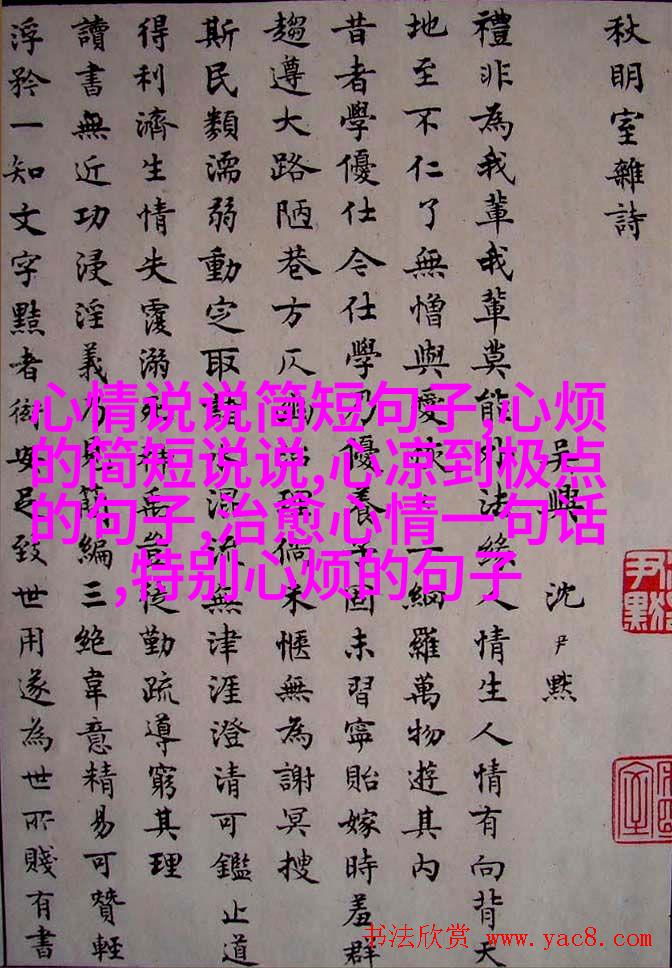 秋明室雜詩
吳興 沈尹默
禮非為我輩我輩莫能 法緣人情生人情有向背天
地至不仁了無憎與愛 一網羅萬物遊其內
昔者學優仕今仕學乃優養 固未習寧貽嫁時羞群
趨遵大路陋巷方仄 理個未愜無為謝冥搜
斯民類濡弱動定取諸 混流無津涯澄清可鑑止道
得利濟生情失覆溺死 禹豈徒勤疏導窮其理
讀書無近功浸淫義乃見 編三絕韋意精易可贊輕
浮矜一知文字黠者衒安足致世用遂為世所賤有書
心情说说简短句子,心烦
的简短说说,心凉到极点
的句子,治愈心情一句话
,特别心烦的句子
尹默
书法欣赏 www.yac8.com